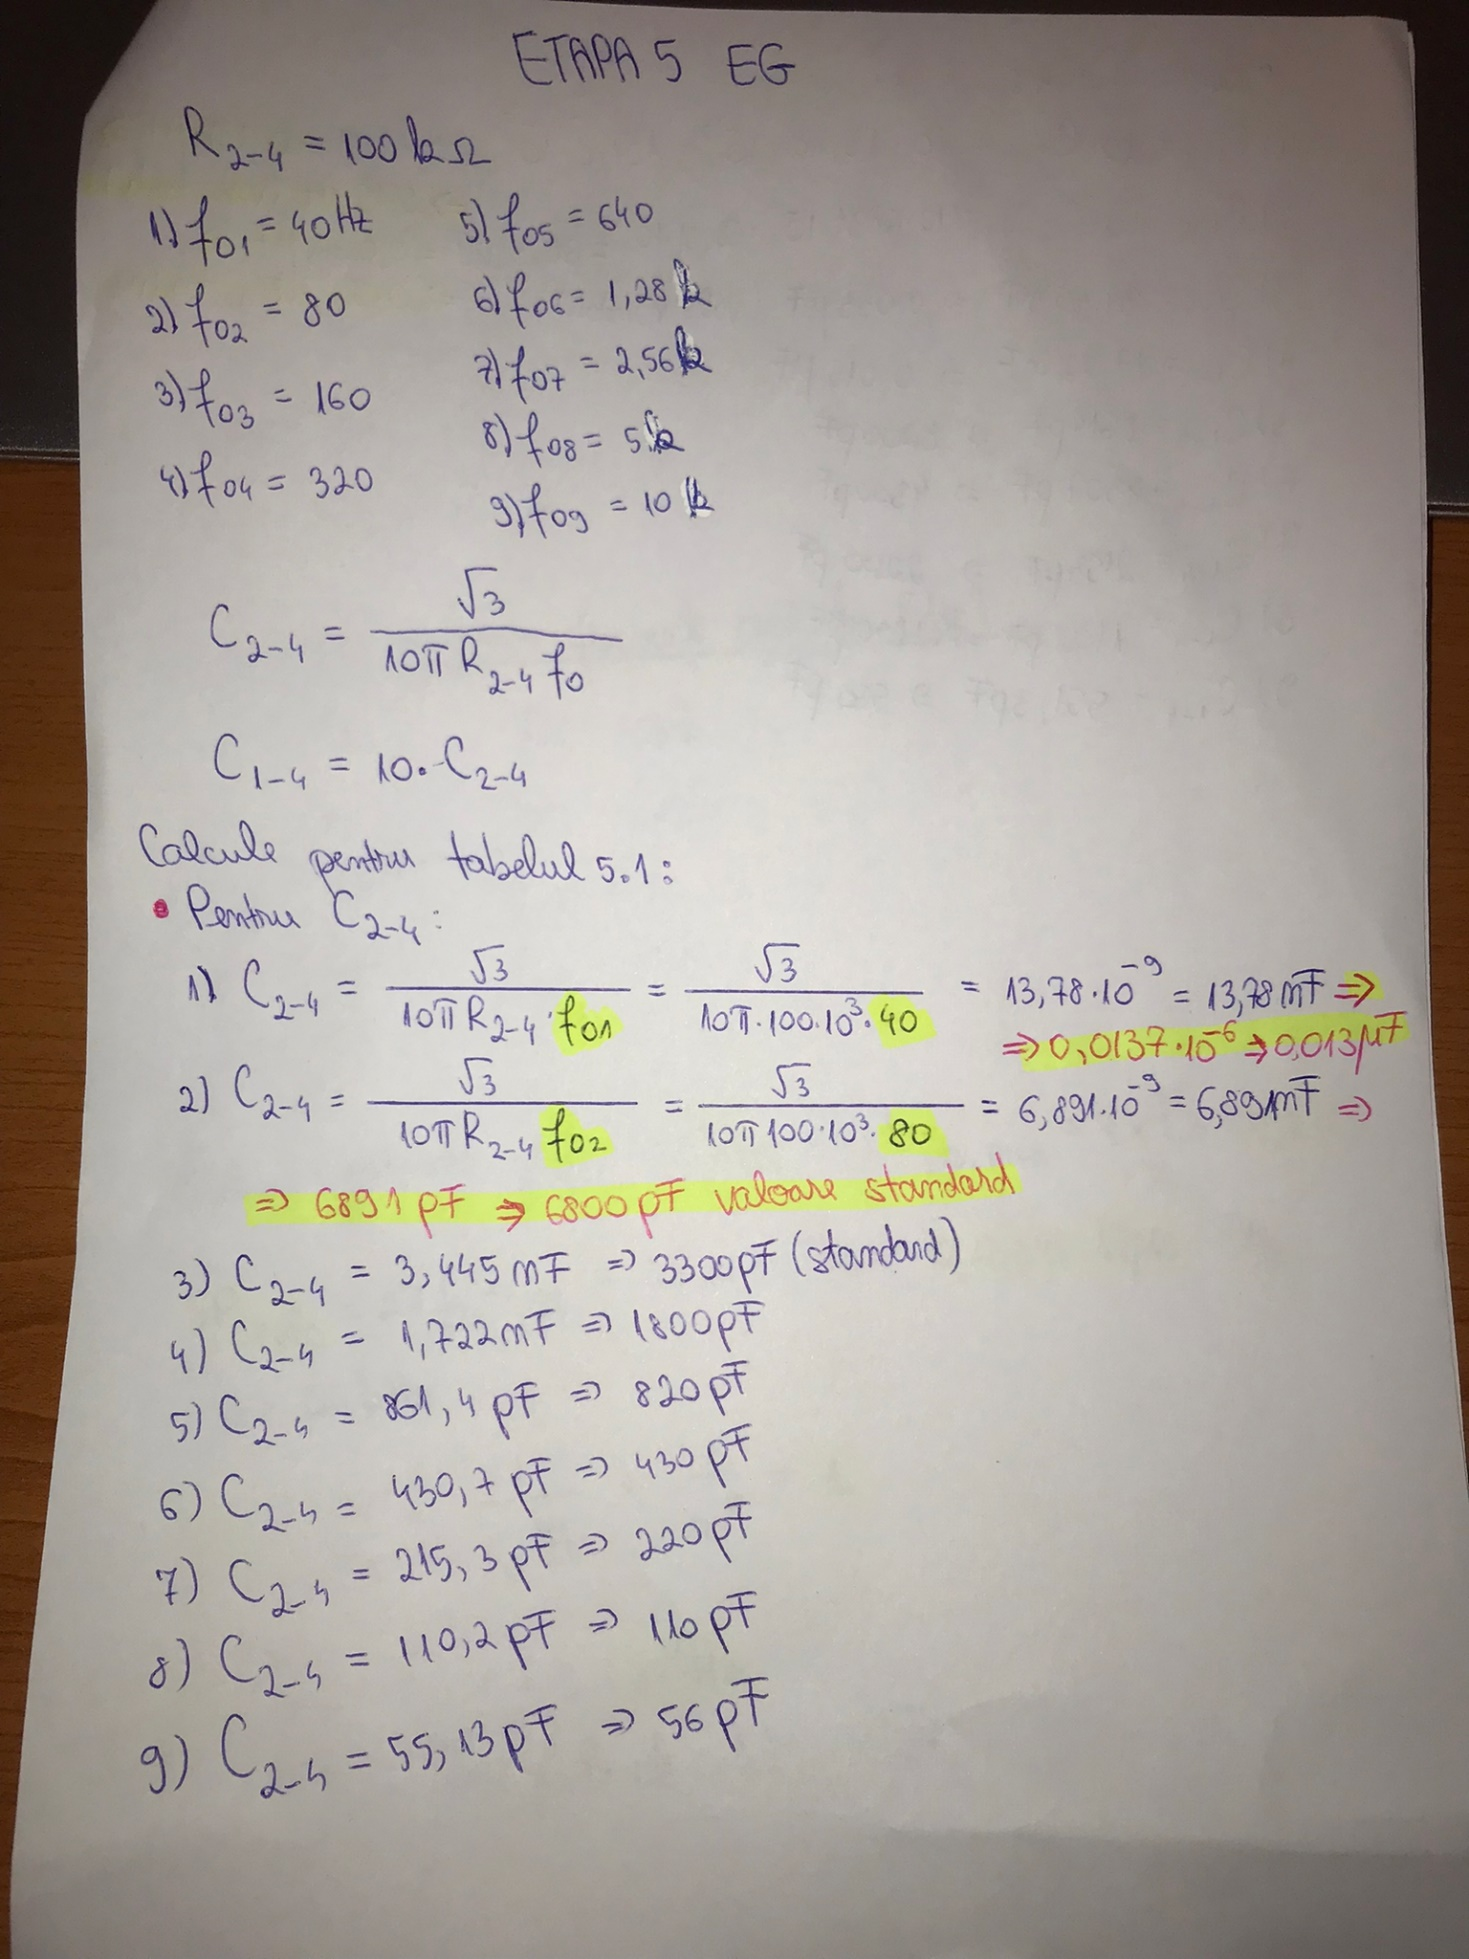 ETAPA 5 EG
R2-4 = 100 kΩ
1) f01 = 40Hz
2) f02 = 80
3) f03 = 160
4) f04 = 320
5) f05 = 640
6) f06 = 1,28 k
7) f07 = 2,56 k
8) f08 = 5 k
9) f09 = 10 k
C2-4 = √3 / 10π R2-4 f0
C1-4 = 10 · C2-4
Calcule pentru tabelul 5.1:
• Pentru C2-4:
1) C2-4 = √3 / 10π R2-4 · f01 = √3 / 10π·100·10³·40 = 13,78·10⁻⁹ = 13,78 nF ⇒
⇒ 0,0137·10⁻⁶ → 0,013 μF
2) C2-4 = √3 / 10π R2-4 f02 = √3 / 10π 100·10³·80 = 6,891·10⁻⁹ = 6,891 nF ⇒
⇒ 6891 pF ⇒ 6800 pF valoare standard
3) C2-4 = 3,445 nF ⇒ 3300 pF (standard)
4) C2-4 = 1,722 nF ⇒ 1800 pF
5) C2-4 = 861,4 pF ⇒ 820 pF
6) C2-4 = 430,7 pF ⇒ 430 pF
7) C2-4 = 215,3 pF ⇒ 220 pF
8) C2-4 = 110,2 pF ⇒ 110 pF
9) C2-4 = 55,13 pF ⇒ 56 pF